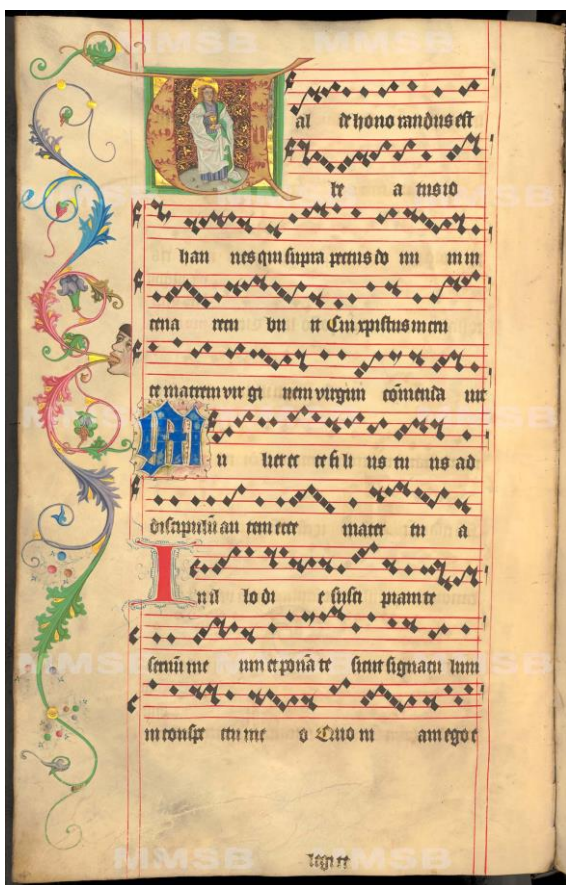 MMSB MMSB
Val de hono randus est
be a tus io
han nes qui supra pectus do mi ni in
cena recu bu it Cui xpistus in cru
ce matrem vir gi nem virgini cōmenda vit
Mu lier ec ce fi li us tu us ad
discipulū au tem ecce mater tu a
In il lo di e susci piam te
seruū me um et ponā te sicut signacu lum
in conspe ctu me o Quo ni am ego e
legi te
MMSB MMSB